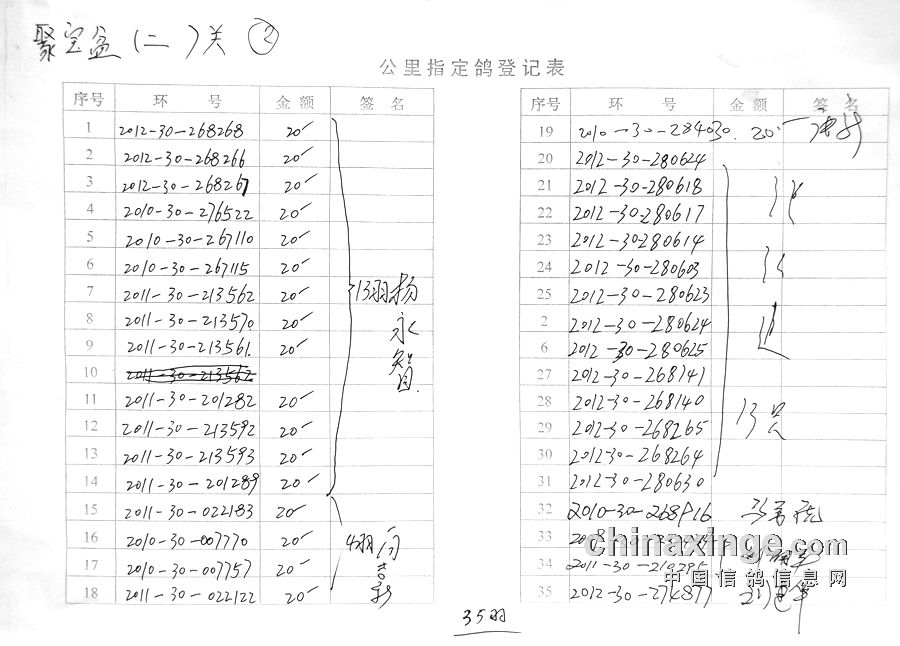 聚宝盆(二)关 ②
公里指定鸽登记表
序号 环 号 金 额 签 名
1 2012-30-268268 20
2 2012-30-268266 20
3 2012-30-268267 20
4 2010-30-276522 20
5 2010-30-267110 20
6 2010-30-267115 20
7 2011-30-213562 20
8 2011-30-213570 20
9 2011-30-213561. 20
10 2011-30-213562
11 2011-30-201282 20
12 2011-30-213592 20
13 2011-30-213593 20
14 2011-30-201289 20
13羽 杨永智
15 2011-30-022183 20
16 2010-30-007770 20
17 2010-30-007757 20
18 2011-30-022122 20
4羽
序号 环 号 金 额 签 名
19 2010-30-284030. 20
20 2012-30-280624
21 2012-30-280618
22 2012-30-280617
23 2012-30-280614
24 2012-30-280603
25 2012-30-280623
2 2012-30-280624
6 2012-30-280625
27 2012-30-268141
28 2012-30-268140
29 2012-30-268265
30 2012-30-268264
31 2012-30-280630
13只
32 2010-30-268916
33
34 2011-30-219295
35 2012-30-274877
35羽
chinaxinge.com
中国信鸽信息网